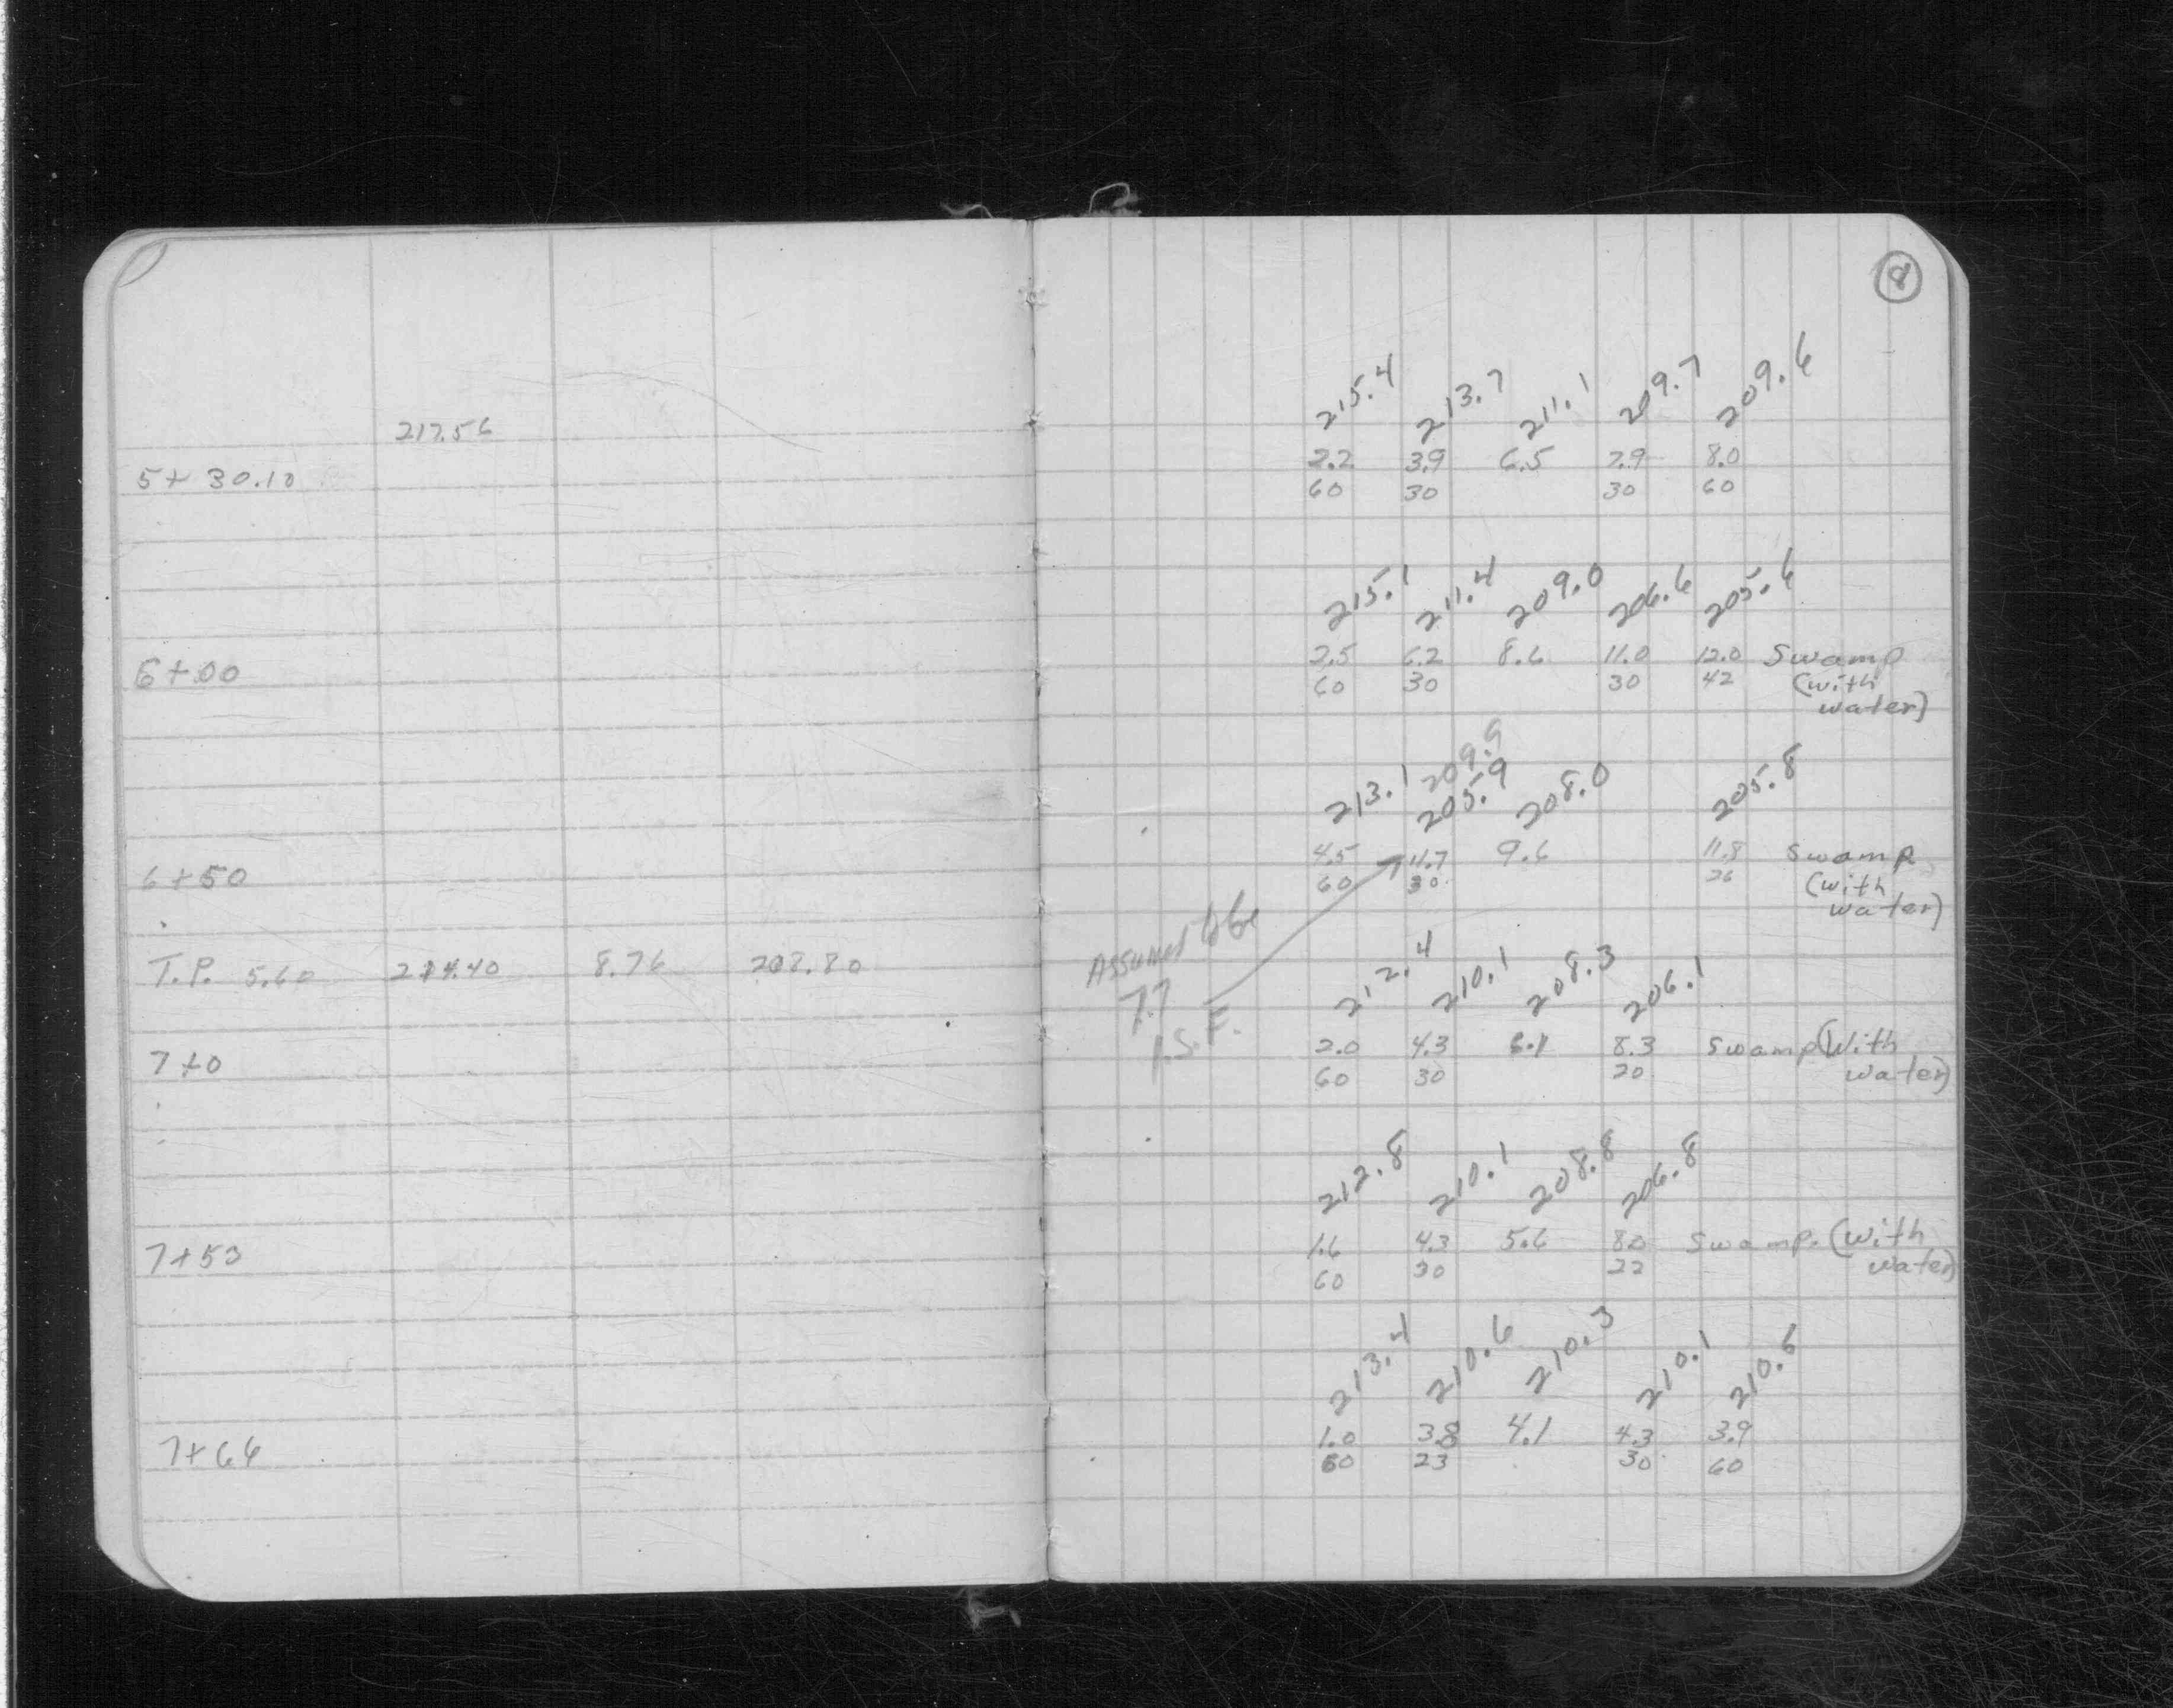 217.56
5+30.10
6+00
6+50
T.P. 5.60 214.40 8.76 208.80
7+0
7+53
7+64
8
215.4 213.7 211.1 209.7 209.6
2.2 3.9 6.5 7.9 8.0
60 30 30 60
215.1 211.4 209.0 206.6 205.6
2.5 6.2 8.6 11.0 12.0 Swamp
60 30 30 42 (with
water)
209.9
213.1 205.9 208.0 205.8
4.5 11.7 9.6 11.8 Swamp
60 30 26 (with
water)
Assumed to be
7.7
212.4 210.1 208.3 206.1
2.0 4.3 6.1 8.3 Swamp (With
60 30 20 water)
212.8 210.1 208.8 206.8
1.6 4.3 5.6 8.0 Swamp. (With
60 30 22 water)
213.4 210.6 210.3 210.1 210.6
1.0 3.8 4.1 4.3 3.9
60 23 30 60